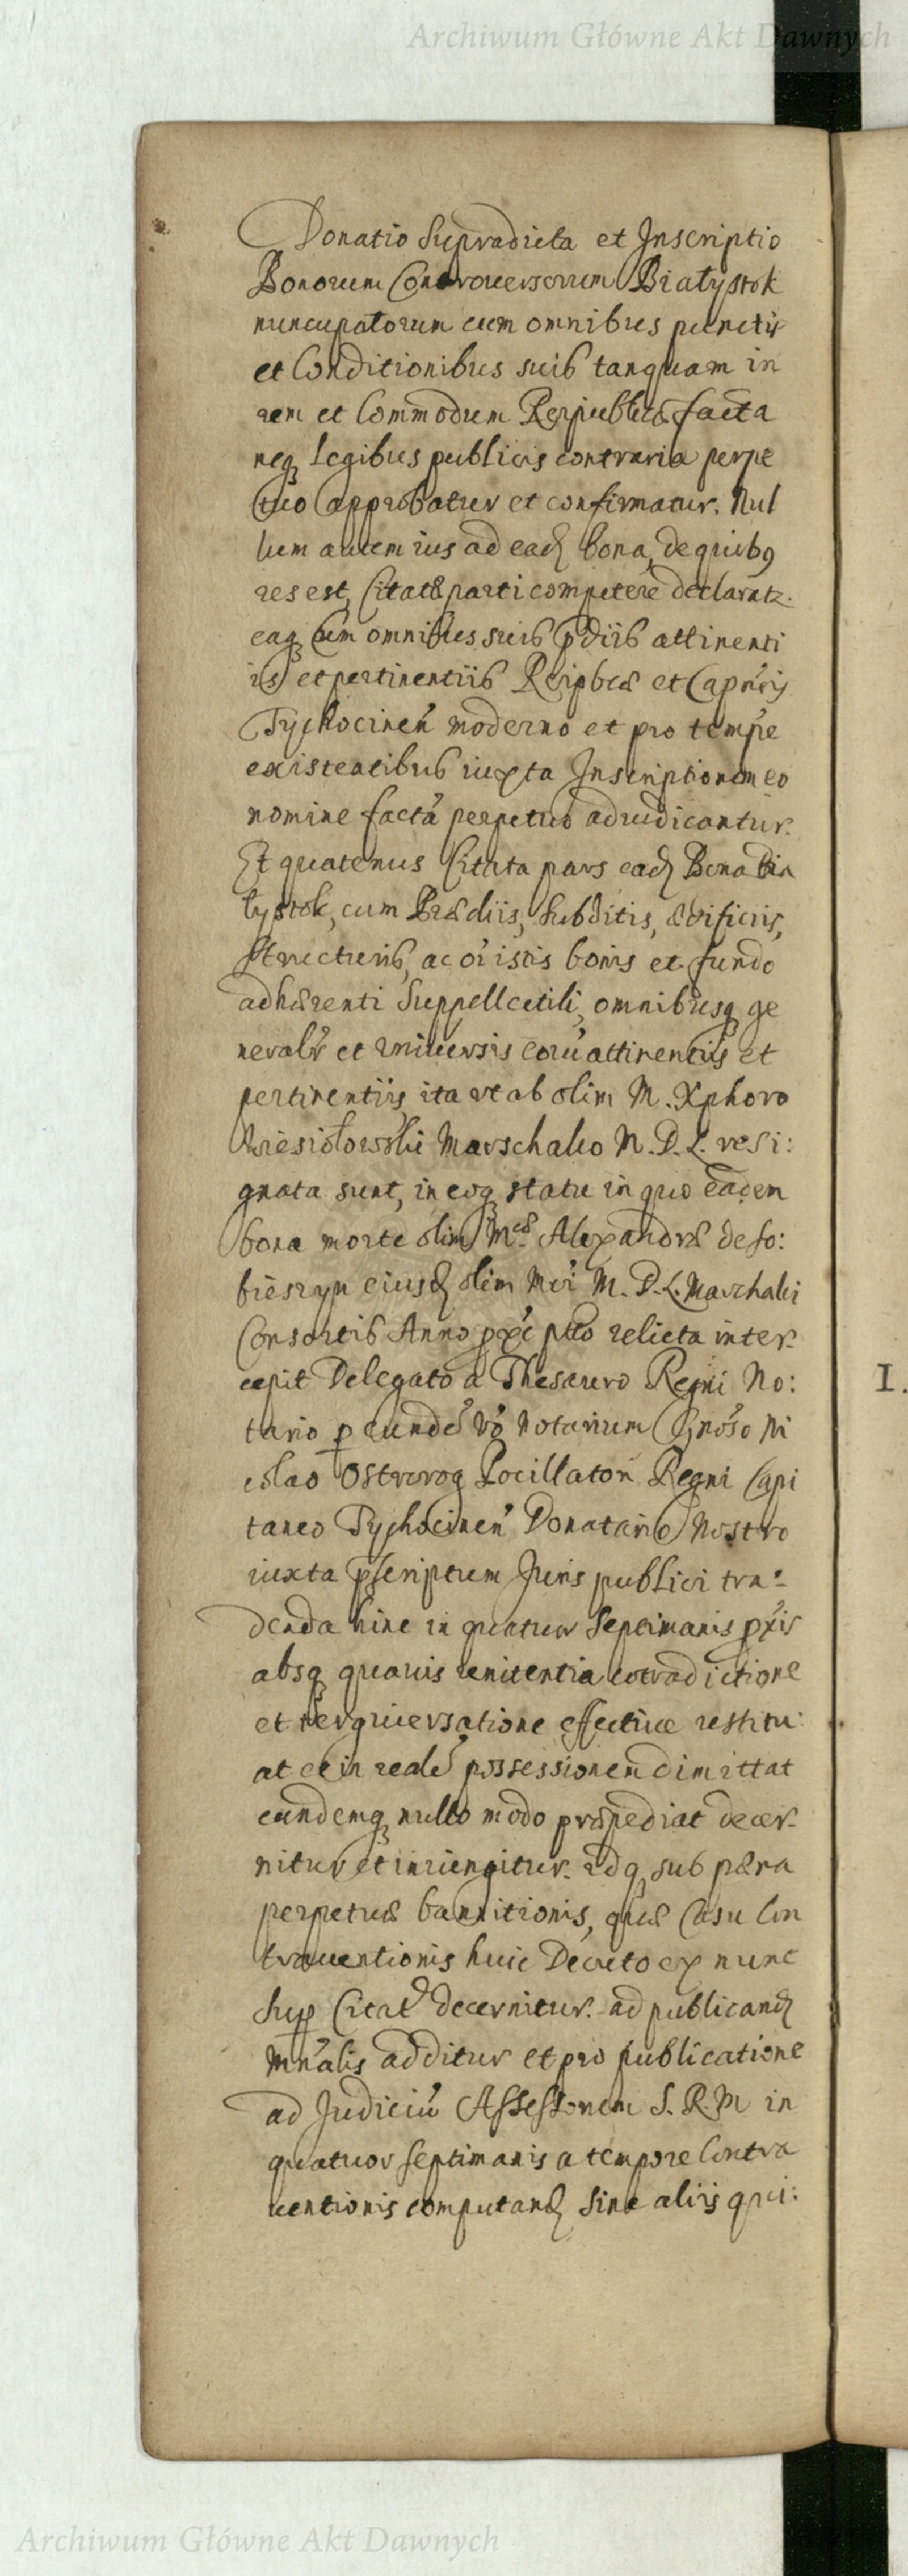 Archiwum Główne Akt Dawnych
Donatio Supradicta et Inscriptio
Bonorum Controuersorum Białystok
nuncupatorum cum omnibus punctis
et Conditionibus suis tanquam in
rem et Commodum Reipublicæ facta
neq legibus publicis contraria perpe
tuo approbatur et confirmatur. Nul
lum autem ius ad ead bona, de quibq
res est, Citatæ parti competere declarat.
eaq cum omnibus suis pdiis attinenti
is et pertinentiis Reipbcæ et Capnei
Tychocinen moderno et pro tempe
existentibus iuxta Inscriptionem eo
nomine factá perpetuo adiudicantur.
Et quatenus Citata pars ead Bona Bia
łystok, cum Prædiis, Subditis, ædificiis,
structuris, ac oi istis bonis et fundo
adhærenti Suppellectili, omnibusq ge
neralr et vniuersis eorú attinentiis et
pertinentiis ita vt ab olim M. Xphoro
Wiesiołowski Marschalco M. D. L. resi:
gnata sunt, in eoq statu in quo eadem
bona morte olim Mcæ Alexandræ de so:
bieszyn eiusd olim Mci M. D. L. Marchalci
Consortis Anno pxe pto relicta inter
cepit Delegato a Thesauro Regni No:
tario p eunde vo notarium Gnoso Ni
colao Ostrorog Pocillatori Regni Capi
taneo Tychocinen Donatario Nostro
iuxta pscriptum Juris publici tra:
denda hinc in quatuor Septimanis pxis
absq quauis renitentia cotradictione
et tergiuersatione effectiue restitu:
at et in reale possessionem dimittat
eundemq nullo modo præpediat decer
nitur et iniungitur. idq sub pæna
perpetuæ bannitionis, quæ Casu Con
trauentionis huic Decreto ex nunc
Sup Citat decernitur. ad publicand
Mnalis additur et pro publicatione
ad Judiciú Assessorem S. R. M in
quatuor septimanis a tempore Contra
uentionis computand Sine aliis qui:
I.
Archiwum Główne Akt Dawnych